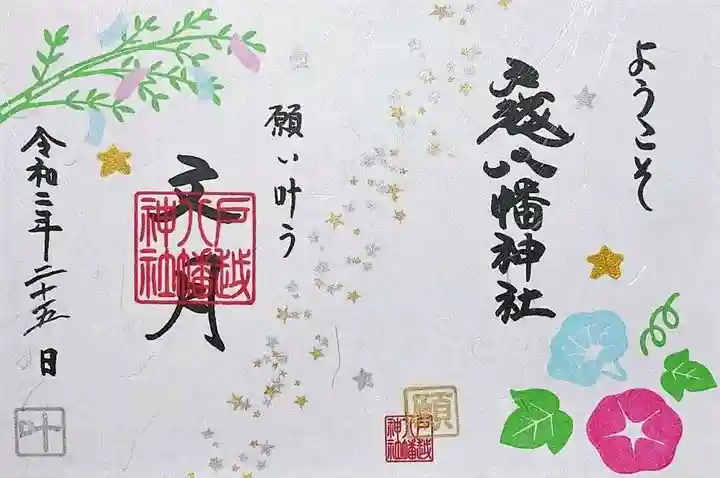 ようこそ
戸越八幡神社
願
戸越
八幡
神社
願い叶う
文月
戸越
八幡
神社
令和二年 二十五日
叶